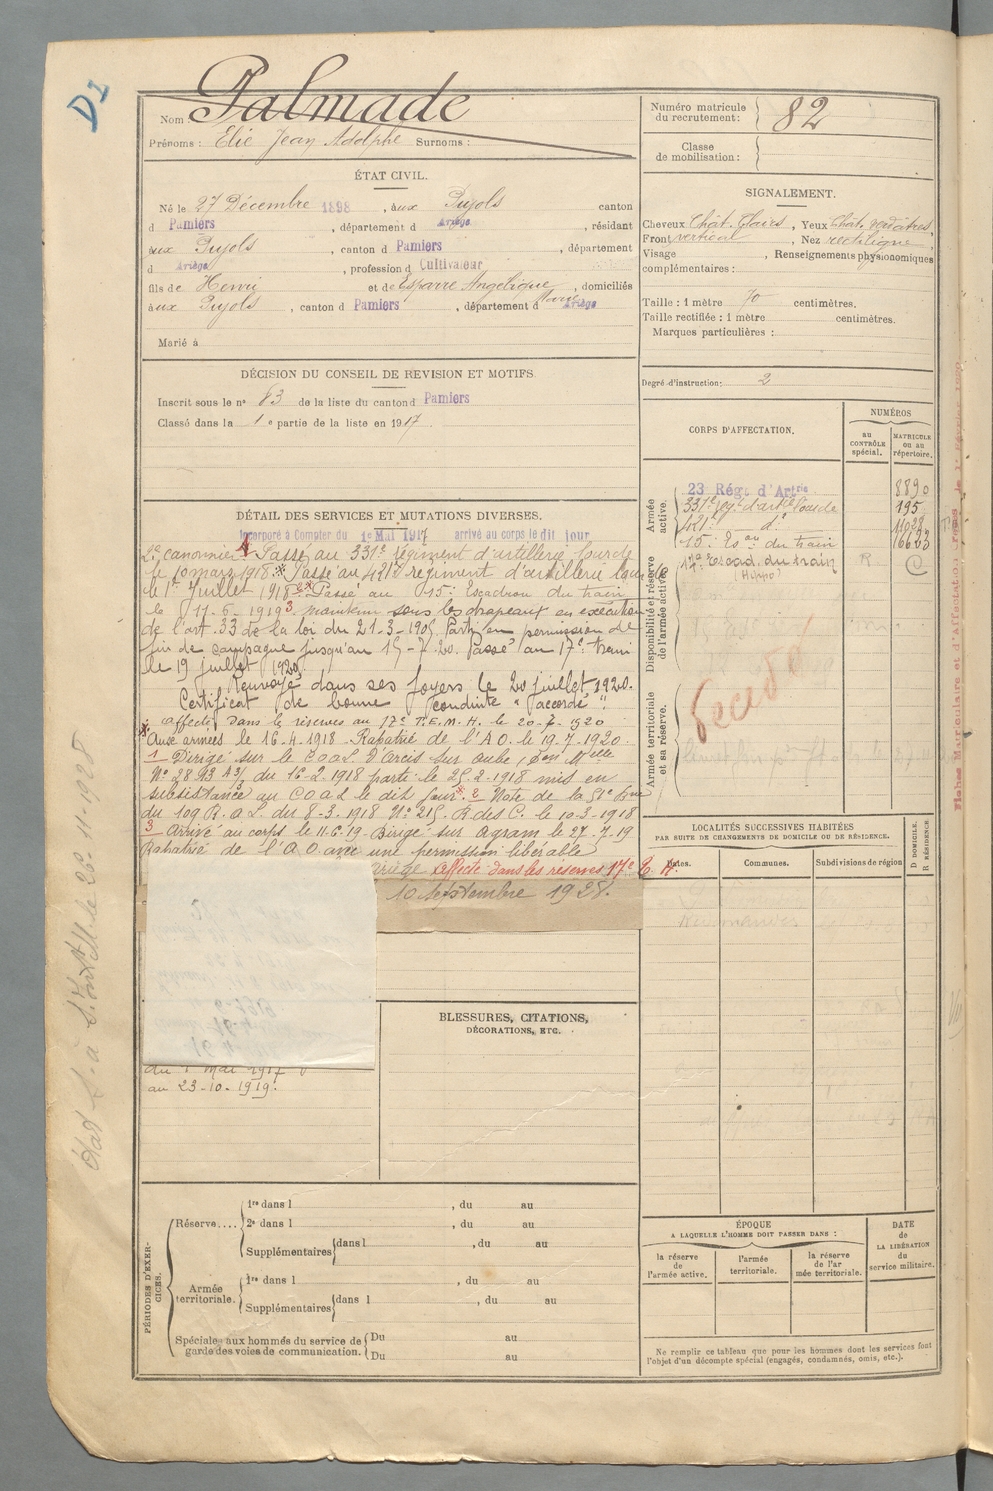 D1
Nom : Palmade
Prénoms : Elie Jean Adolphe Surnoms :
Numéro matricule du recrutement : 82
Classe de mobilisation :
ÉTAT CIVIL.
Né le 27 Décembre 1898, aux Pujols canton
d Pamiers, département d Ariège, résidant
aux Pujols, canton d Pamiers, département
d Ariège, profession d Cultivateur
fils de Henri et de Esparre Angélique Marie, domiciliés
aux Pujols, canton d Pamiers, département d Ariège
Marié à
SIGNALEMENT.
Cheveux Chât. Clairs, Yeux Chât. verdâtres,
Front vertical, Nez rectiligne,
Visage , Renseignements physionomiques
complémentaires :
Taille : 1 mètre 70 centimètres.
Taille rectifiée : 1 mètre centimètres.
Marques particulières :
Degré d'instruction : 2
DÉCISION DU CONSEIL DE REVISION ET MOTIFS.
Inscrit sous le n° 83 de la liste du canton d Pamiers
Classé dans la 1e partie de la liste en 1917.
CORPS D'AFFECTATION.
NUMÉROS
au CONTRÔLE spécial.
MATRICULE ou au répertoire.
Armée active.
23 Régt d'Artrie 8890
331e régt d'artie lourde 195
421e d° 11038
15e Eson du train 16623
Disponibilité et réserve de l'armée active.
17e Escad. du train R. C
(Hippo)
Armée territoriale et sa réserve.
Décédé
DÉTAIL DES SERVICES ET MUTATIONS DIVERSES.
Incorporé à Compter du 1e Mai 1917 arrivé au corps le dit jour
2e canonnier. Passé au 331e régiment d'artillerie lourde
le 10 mars 1918. Passé au 421e régiment d'artillerie lourde
le 1er Juillet 1918. Passé au 15e Escadron du train
le 11-6-1919 3 maintenu sous les drapeaux en exécution
de l'art. 33 de la loi du 21-3-1905 Parti en permission de
fin de campagne jusqu'au 15-7-20. Passé au 17e train
le 19 juillet 1920.
Renvoyé dans ses foyers le 20 juillet 1920.
Certificat de bonne conduite "accordé".
Affecté dans la réserve au 17e T.E.M.H. le 20-7-1920
Aux armées le 16-4-1918. Rapatrié de l'A O. le 19-7-1920.
1 Dirigé sur le C.O.A.L. D'Arcis sur Aube, Don Mtelle
N° 2893 A3/ du 16-2-1918 parti le 25-2-1918 mis en
subsistance au C O A L le dit jour. 2 Note de la
du 109 R. A L. du 8-3-1918 N° 215. R. des C. le 10-3-1918
3 Arrivé au corps le 11-6-19. Dirigé sur Agram le 27-7-19
Rapatrié de l'A O. avec une permission libérable
Ariège affecté dans les réserves 17e
10 Septembre 1928.
du 1 mai 1917
au 23-10-1919.
LOCALITÉS SUCCESSIVES HABITÉES
PAR SUITE DE CHANGEMENTS DE DOMICILE OU DE RÉSIDENCE.
Dates.
Communes.
Subdivisions de région
D DOMICILE.
R RÉSIDENCE
BLESSURES, CITATIONS,
DÉCORATIONS, ETC.
PÉRIODES D'EXERCICES.
Réserve....
1re dans l , du au
2e dans l , du au
Supplémentaires dans l , du au
Armée territoriale.
1re dans l , du au
Supplémentaires dans l , du au
Spéciales aux hommes du service de garde des voies de communication.
Du au
Du au
ÉPOQUE
A LAQUELLE L'HOMME DOIT PASSER DANS :
la réserve de l'armée active.
l'armée territoriale.
la réserve de l'armée territoriale.
DATE de LA LIBÉRATION du service militaire.
Ne remplir ce tableau que pour les hommes dont les services font
l'objet d'un décompte spécial (engagés, condamnés, omis, etc.).